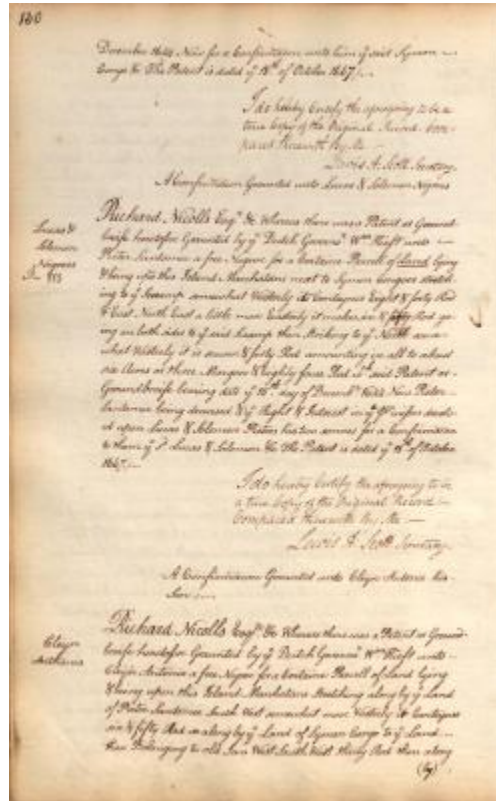 180
December 1644 Now for a Confirmation unto him ye said Symon
Congo &c The Patent is dated ye 18th of October 1667/.
I do hereby Certify the aforegoing to be a
true Copy of the Original Record Com-
pared therewith By Me
Lewis A. Scott Secretary.
A Confirmation Granted unto Lucas & Solomon Negroes
Lucas &
Solomon
Negroes
Richard Nicolls Esqr. &c Whereas there was a Patent or Ground-
briefe heretofore Graunted by ye Dutch Governr. Wm Kieft unto
Pieter Santomee a free Negroe for a Certaine Parcell of Land lying
& being upon this Island Manhatans next to Symon Congoes stretch-
ing to ye Swamp somewhat Westerly it Contaynes Eight & forty Rod
& East North East a little more Easterly it makes Rod go-
ing on both sides to ye said Swamp then Striking to ye some-
what Westerly it is seaven & forty Rod amounting in all to about
six Acres or three Margen & Eighty foure Rod wch. said Patent or
Groundbriefe bearing date ye 15th. day of Decembr. 1644 Now Pieter
Santomee being deceased & ye Right & Interest in ye Pr'misses devolv-
ed upon Lucas & Solomon Pieters his two sonnes for a Confirmation
to them ye sd. Lucas & Solomon &c The Patent is dated ye of October
1667/.
I do hereby Certify the aforegoing to be
a true Copy of the Original Record
Compared therewith By Me
Lewis A. Scott Secretary.
A Confirmation Granted unto Cleyn Antonio his
Son
Cleyn
Richard Nicolls Esqr. &c Whereas there was a Patent or Ground-
briefe heretofore Graunted by ye Dutch Governr. Wm Kieft unto
Cleyn Antonio a free Negro for a Certaine Parcell of Land lying
& being upon this Island Manhatans Stretching along by ye Land
of Pieter Santomee South West somewhat more Westerly it Containes
six & fifty Rod as along by ye Land of Symon Congo to ye Land
then Belonging to old Jan West South West thirty Rod then along
(by)